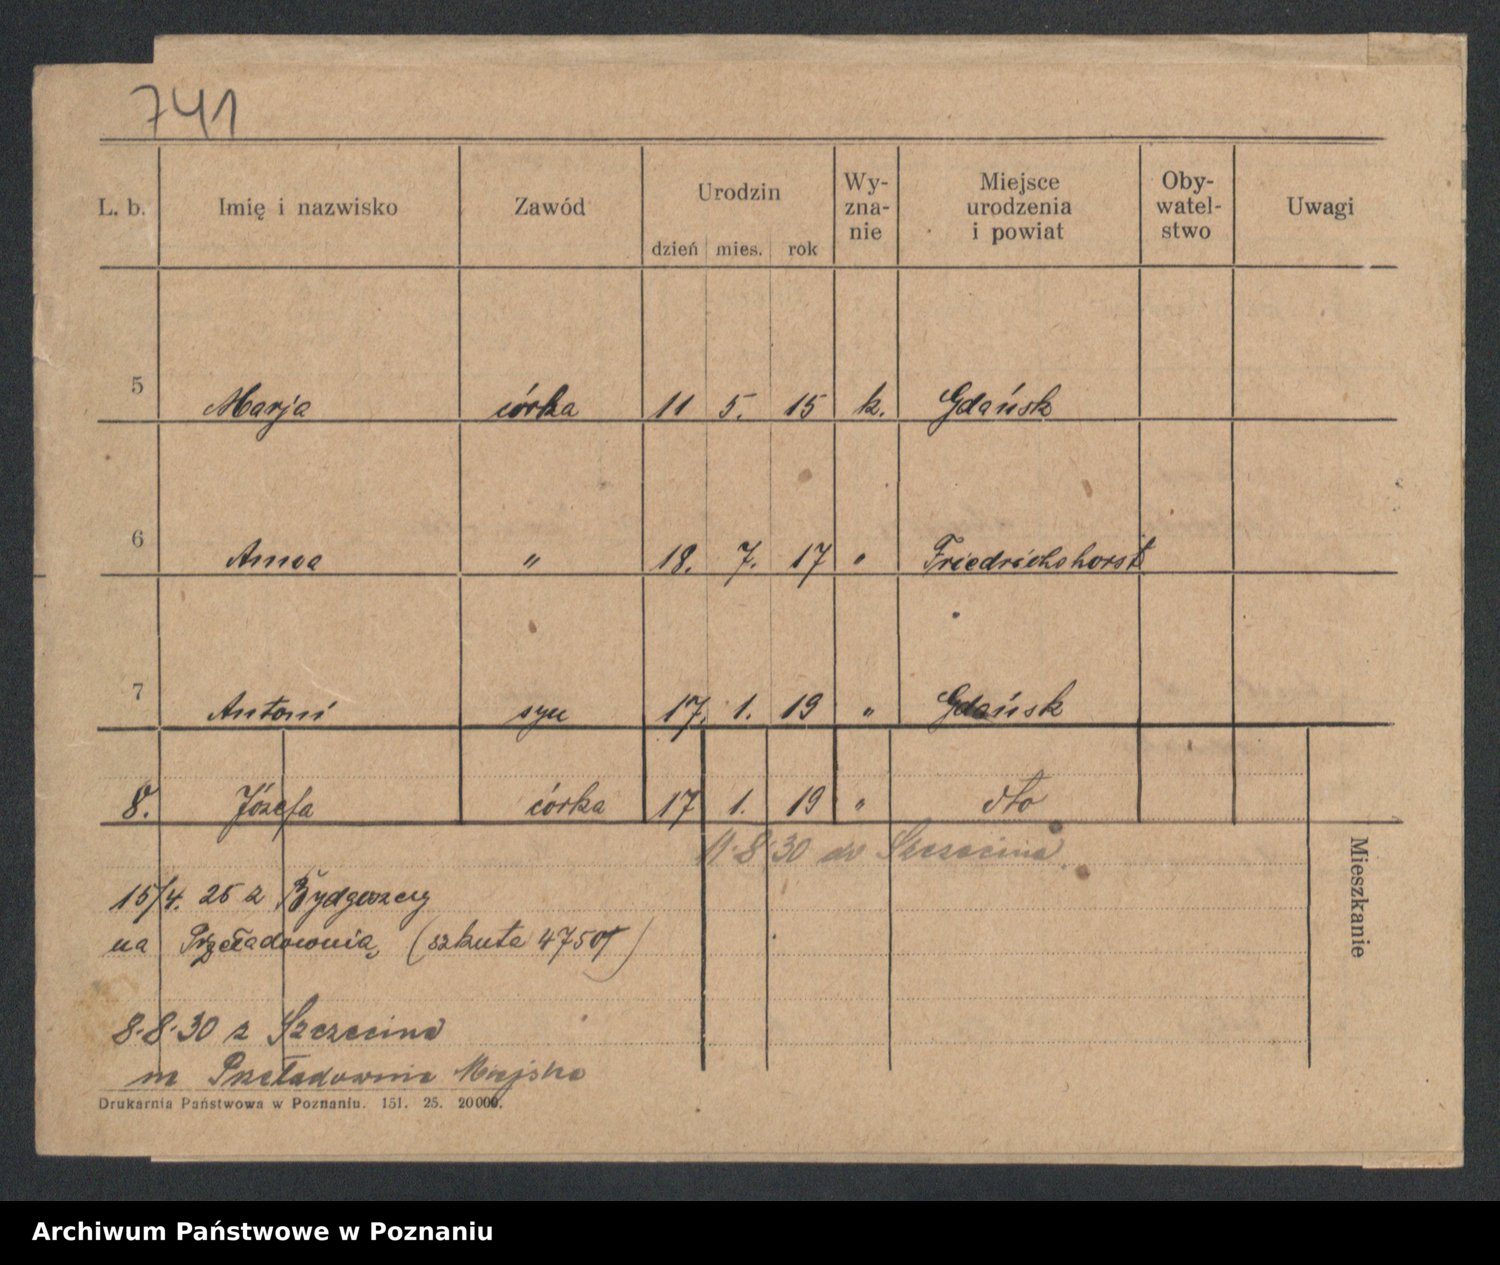 741
L. b. Imię i nazwisko Zawód Urodzin Wy- Miejsce Oby- Uwagi
zna- urodzenia watel-
nie i powiat stwo
dzień mies. rok
5 Marja córka 11 5. 15 k. Gdańsk
6 Anna " 18. 7. 17 " Friedrichshorst
7 Antoni syn 17. 1. 19 " Gdańsk
8. Józefa córka 17 1. 19 " dto
11·8·30 do Szczecina
15/4. 25 z Bydgoszczy
na Przeładownią (szkuta 4750)
8·8·30 z Szczecina
na Przeładownia Miejska
Mieszkanie
Drukarnia Państwowa w Poznaniu. 151. 25. 20000.
Archiwum Państwowe w Poznaniu